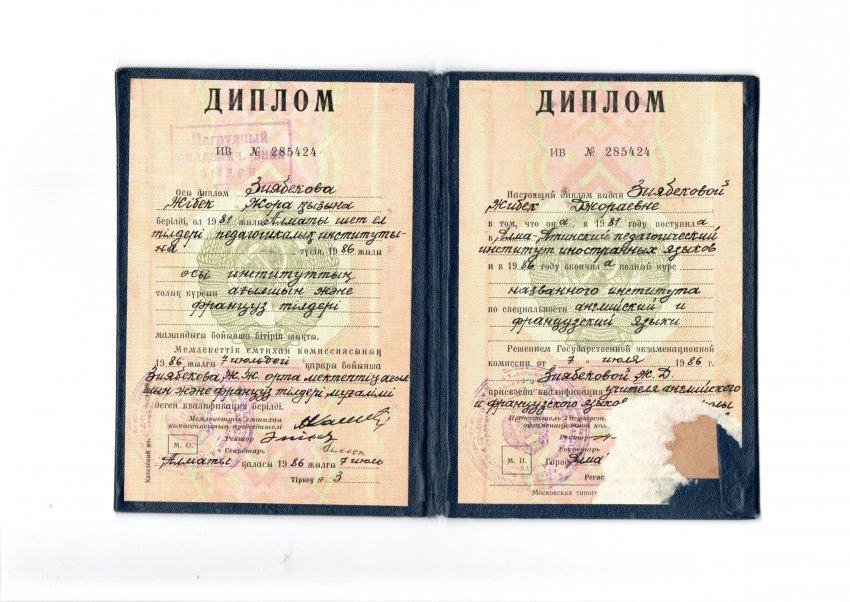 ДИПЛОМ
Нагрудный
ИВ № 285424
Осы диплом Зиябекова
Жібек Жора қызына
берілді, ол 1981 жылы Алматы шет ел
тілдері педагогикалық институты-
на түсіп, 1986 жылы
осы институттың
толық курсын ағылшын және
француз тілдері
мамандығы бойынша бітіріп шықты.
Мемлекеттік емтихан комиссиясының
1986 жылғы 7 июльдегі қарары бойынша
Зиябекова Ж.Ж. орта мектептің ағыл-
шын және француз тілдері мұғалімі
деген квалификация берілді.
Мемлекеттік емтихан
комиссиясының председателі
Ректор
Секретарь
М. О.
Алматы қаласы 1986 жылғы 7 июль
Тіркеу № 3
Казахский яз.
ДИПЛОМ
ИВ № 285424
Настоящий диплом выдан Зиябековой
Жибек Джораевне
в том, что она в 1981 году поступила
в Алма-Атинский педагогический
институт иностранных языков
и в 1986 году окончила полный курс
названного института
по специальности английский и
французский языки
Решением Государственной экзаменационной
комиссии от 7 июля 1986 г.
Зиябековой Ж.Д.
присвоена квалификация учителя английского
и французского языков
Председатель Государ
экзаменационной ком
Ректор
Секретарь
М. П.
Город Алма
Регис
Московская типог